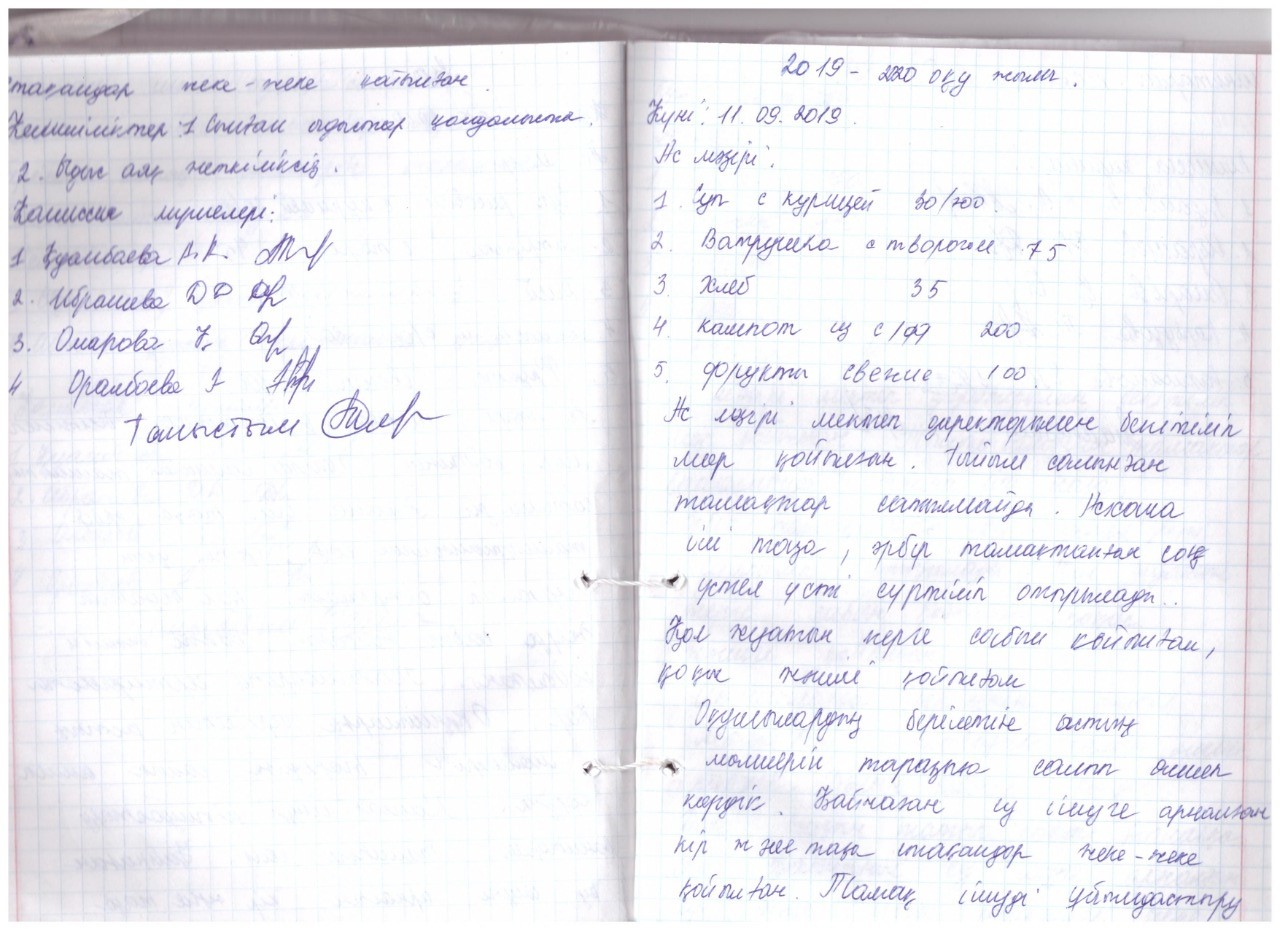 стақандар жеке-жеке қойылған.
Кемшіліктер: 1 Сынған ыдыстар қолданыста.
2. Ыдыс аяқ жеткіліксіз.
Комиссия мүшелері:
1 Куамбаева А.К.
2. Ибрашева Д Ф
3. Омарова Қ
4 Оралбаева А
Таныстым
2019-2020 оқу жылы.
Күні: 11.09.2019.
Ас мәзірі.
1. Суп с курицей 30/200.
2. Ватрушка с творогом 75
3. Хлеб 35
4. Компот из с/фр 200
5. Фрукты свежие 100.
Ас мәзірі мектеп директорымен бекітіліп
мөр қойылған. Тыйым салынған
тамақтар сатылмайды. Асхана
іші таза, әрбір тамақтанған соң
үстел үсті сүртіліп отырылады..
Қол жуатын жерге сабын қойылған,
қоқыс жәшігі қойылған
Оқушылардың берілетін астың
мөлшерін таразыға салып өлшеп
көрдік. Қайнаған су ішуге арналған
кір және таза стақандар жеке-жеке
қойылған. Тамақ ішуді ұйымдастыру